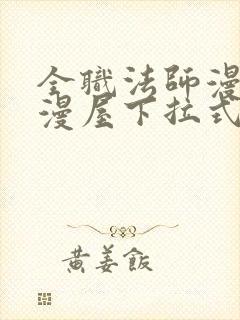 全職法師漫
漫屋下拉式
黃姜飯